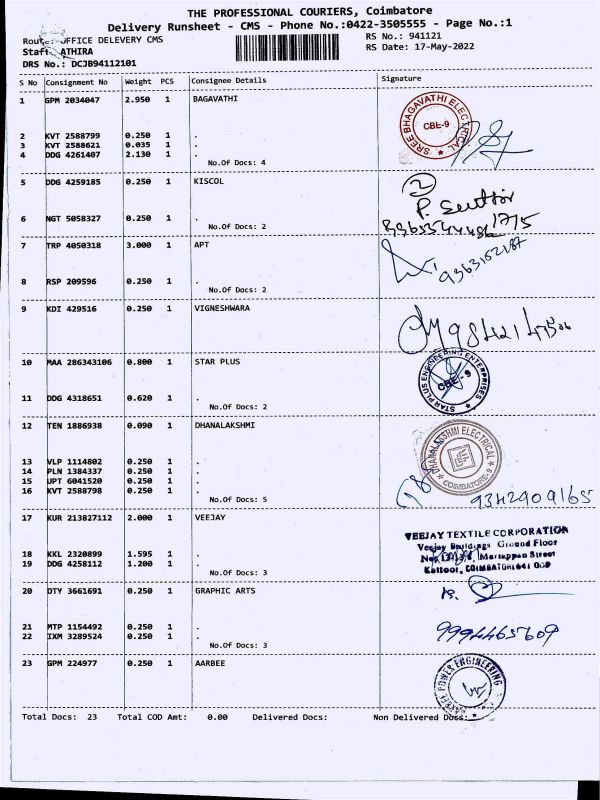 THE PROFESSIONAL COURIERS, Coimbatore
Delivery Runsheet - CMS - Phone No.:0422-3505555 - Page No.:1
Route: OFFICE DELEVERY CMS
RS No.: 941121
Staff: ATHIRA
RS Date: 17-May-2022
DRS No.: DCJB94112101
S No Consignment No Weight PCS Consignee Details Signature
1 GPM 2034047 2.950 1 BAGAVATHI
SREE BHAGAVATHI ELECTRICAL
CBE-9
2 KVT 2588799 0.250 1 .
3 KVT 2588621 0.035 1 .
4 DDG 4261407 2.130 1 .
No.Of Docs: 4
5 DDG 4259185 0.250 1 KISCOL
2
P.
6 NGT 5058327 0.250 1 .
No.Of Docs: 2
7 TRP 4050318 3.000 1 APT
9363152187
8 RSP 209596 0.250 1 .
No.Of Docs: 2
9 KDI 429516 0.250 1 VIGNESHWARA
10 MAA 286343106 0.800 1 STAR PLUS
STAR PLUS ENGINEERING ENTERPRISES
CBE-9
11 DDG 4318651 0.620 1 .
No.Of Docs: 2
12 TEN 1886938 0.090 1 DHANALAKSHMI
DHANALAKSHMI ELECTRICAL
COIMBATORE-9
13 VLP 1114802 0.250 1 .
14 PLN 1384337 0.250 1 .
15 UPT 6041520 0.250 1 .
16 KVT 2588798 0.250 1 .
No.Of Docs: 5
9342909165
17 KUR 213827112 2.000 1 VEEJAY
VEEJAY TEXTILE CORPORATION
Veejay Buildings Ground Floor
18 KKL 2320899 1.595 1 .
Mariappan Street
19 DDG 4258112 1.200 1 .
Kattoor, COIMBATORE-641 009
No.Of Docs: 3
20 DTY 3661691 0.250 1 GRAPHIC ARTS
21 MTP 1154492 0.250 1 .
22 IXM 3289524 0.250 1 .
9994465609
No.Of Docs: 3
23 GPM 224977 0.250 1 AARBEE
POWER ENGINEERING
Total Docs: 23 Total COD Amt: 0.00 Delivered Docs: Non Delivered Docs: